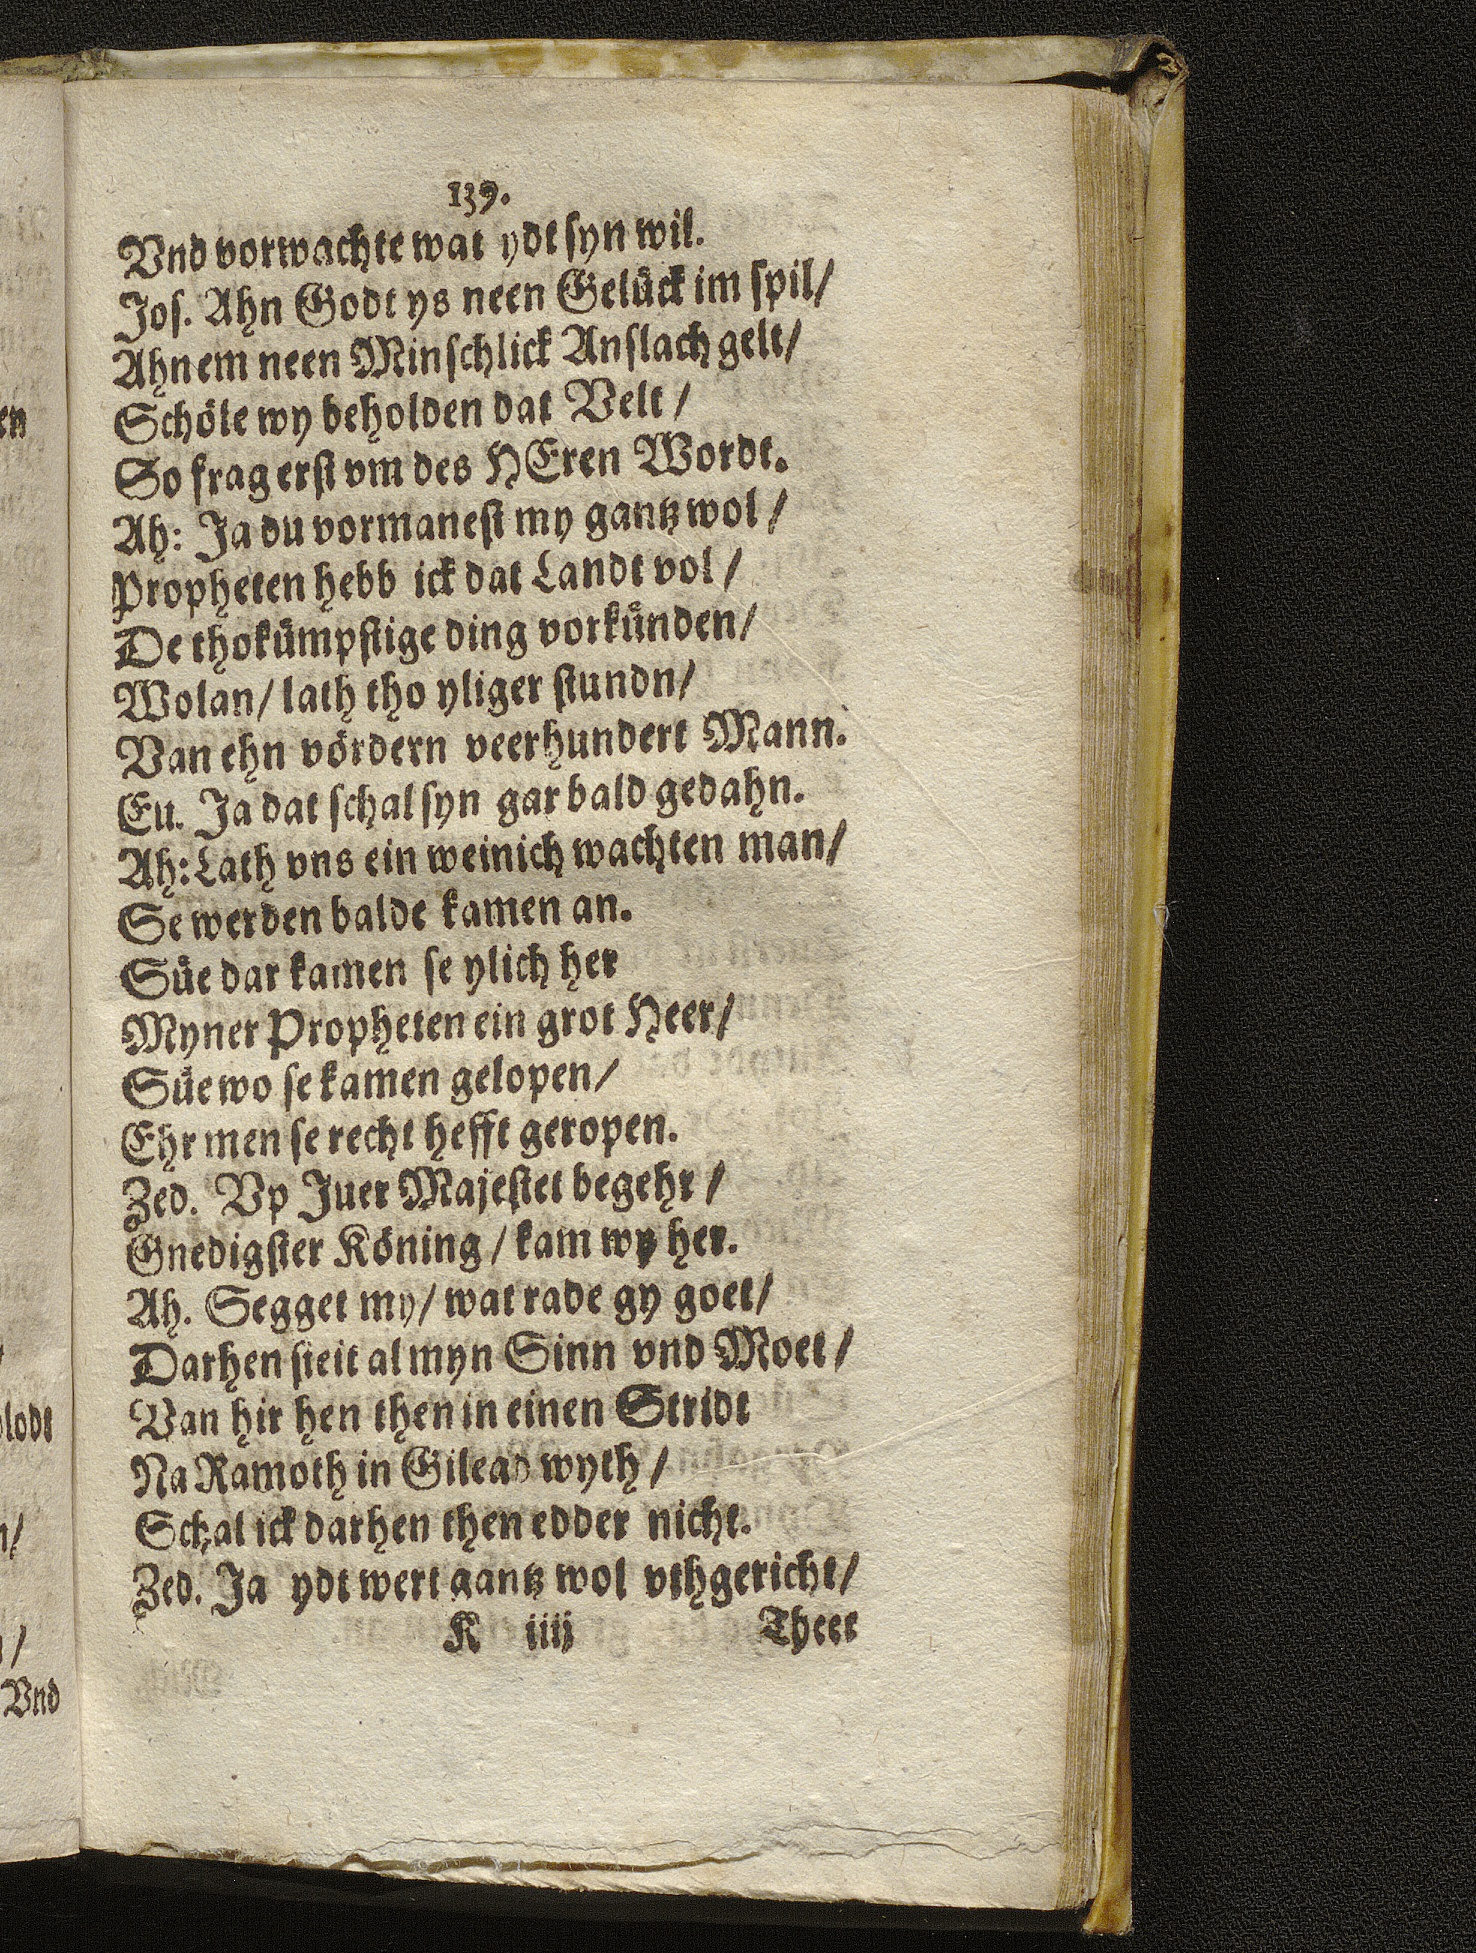 139.
Vnd vorwachte wat ydt syn wil.
Jos. Ahn Godt ys neen Gelück im spil/
Ahn em neen Minschlick Anslach gelt/
Schöle wy beholden dat Velt/
So frag erst vm des HEren Wordt.
Ah: Ja du vormanest my gantz wol/
Propheten hebb ick dat Landt vol/
De thokümpstige ding vorkünden/
Wolan/ lath tho yliger stundn/
Van ehn vördern veerhundert Mann.
Eu. Ja dat schal syn gar bald gedahn.
Ah: Lath vns ein weinich wachten man/
Se werden balde kamen an.
Süe dar kamen se ylich her
Myner Propheten ein grot Heer/
Süe wo se kamen gelopen/
Ehr men se recht hefft geropen.
Zed. Vp Juer Majestet begehr/
Gnedigster Köning/ kam wy her.
Ah. Segget my/ wat rade gy goet/
Darhen steit al myn Sinn vnd Moet/
Van hir hen then in einen Stridt
Na Ramoth in Gilead wyth/
Schal ick darhen then edder nicht.
Zed. Ja ydt wert gantz wol vthgericht/
K iiij Theet
en
lodt
n/
/
Vnd